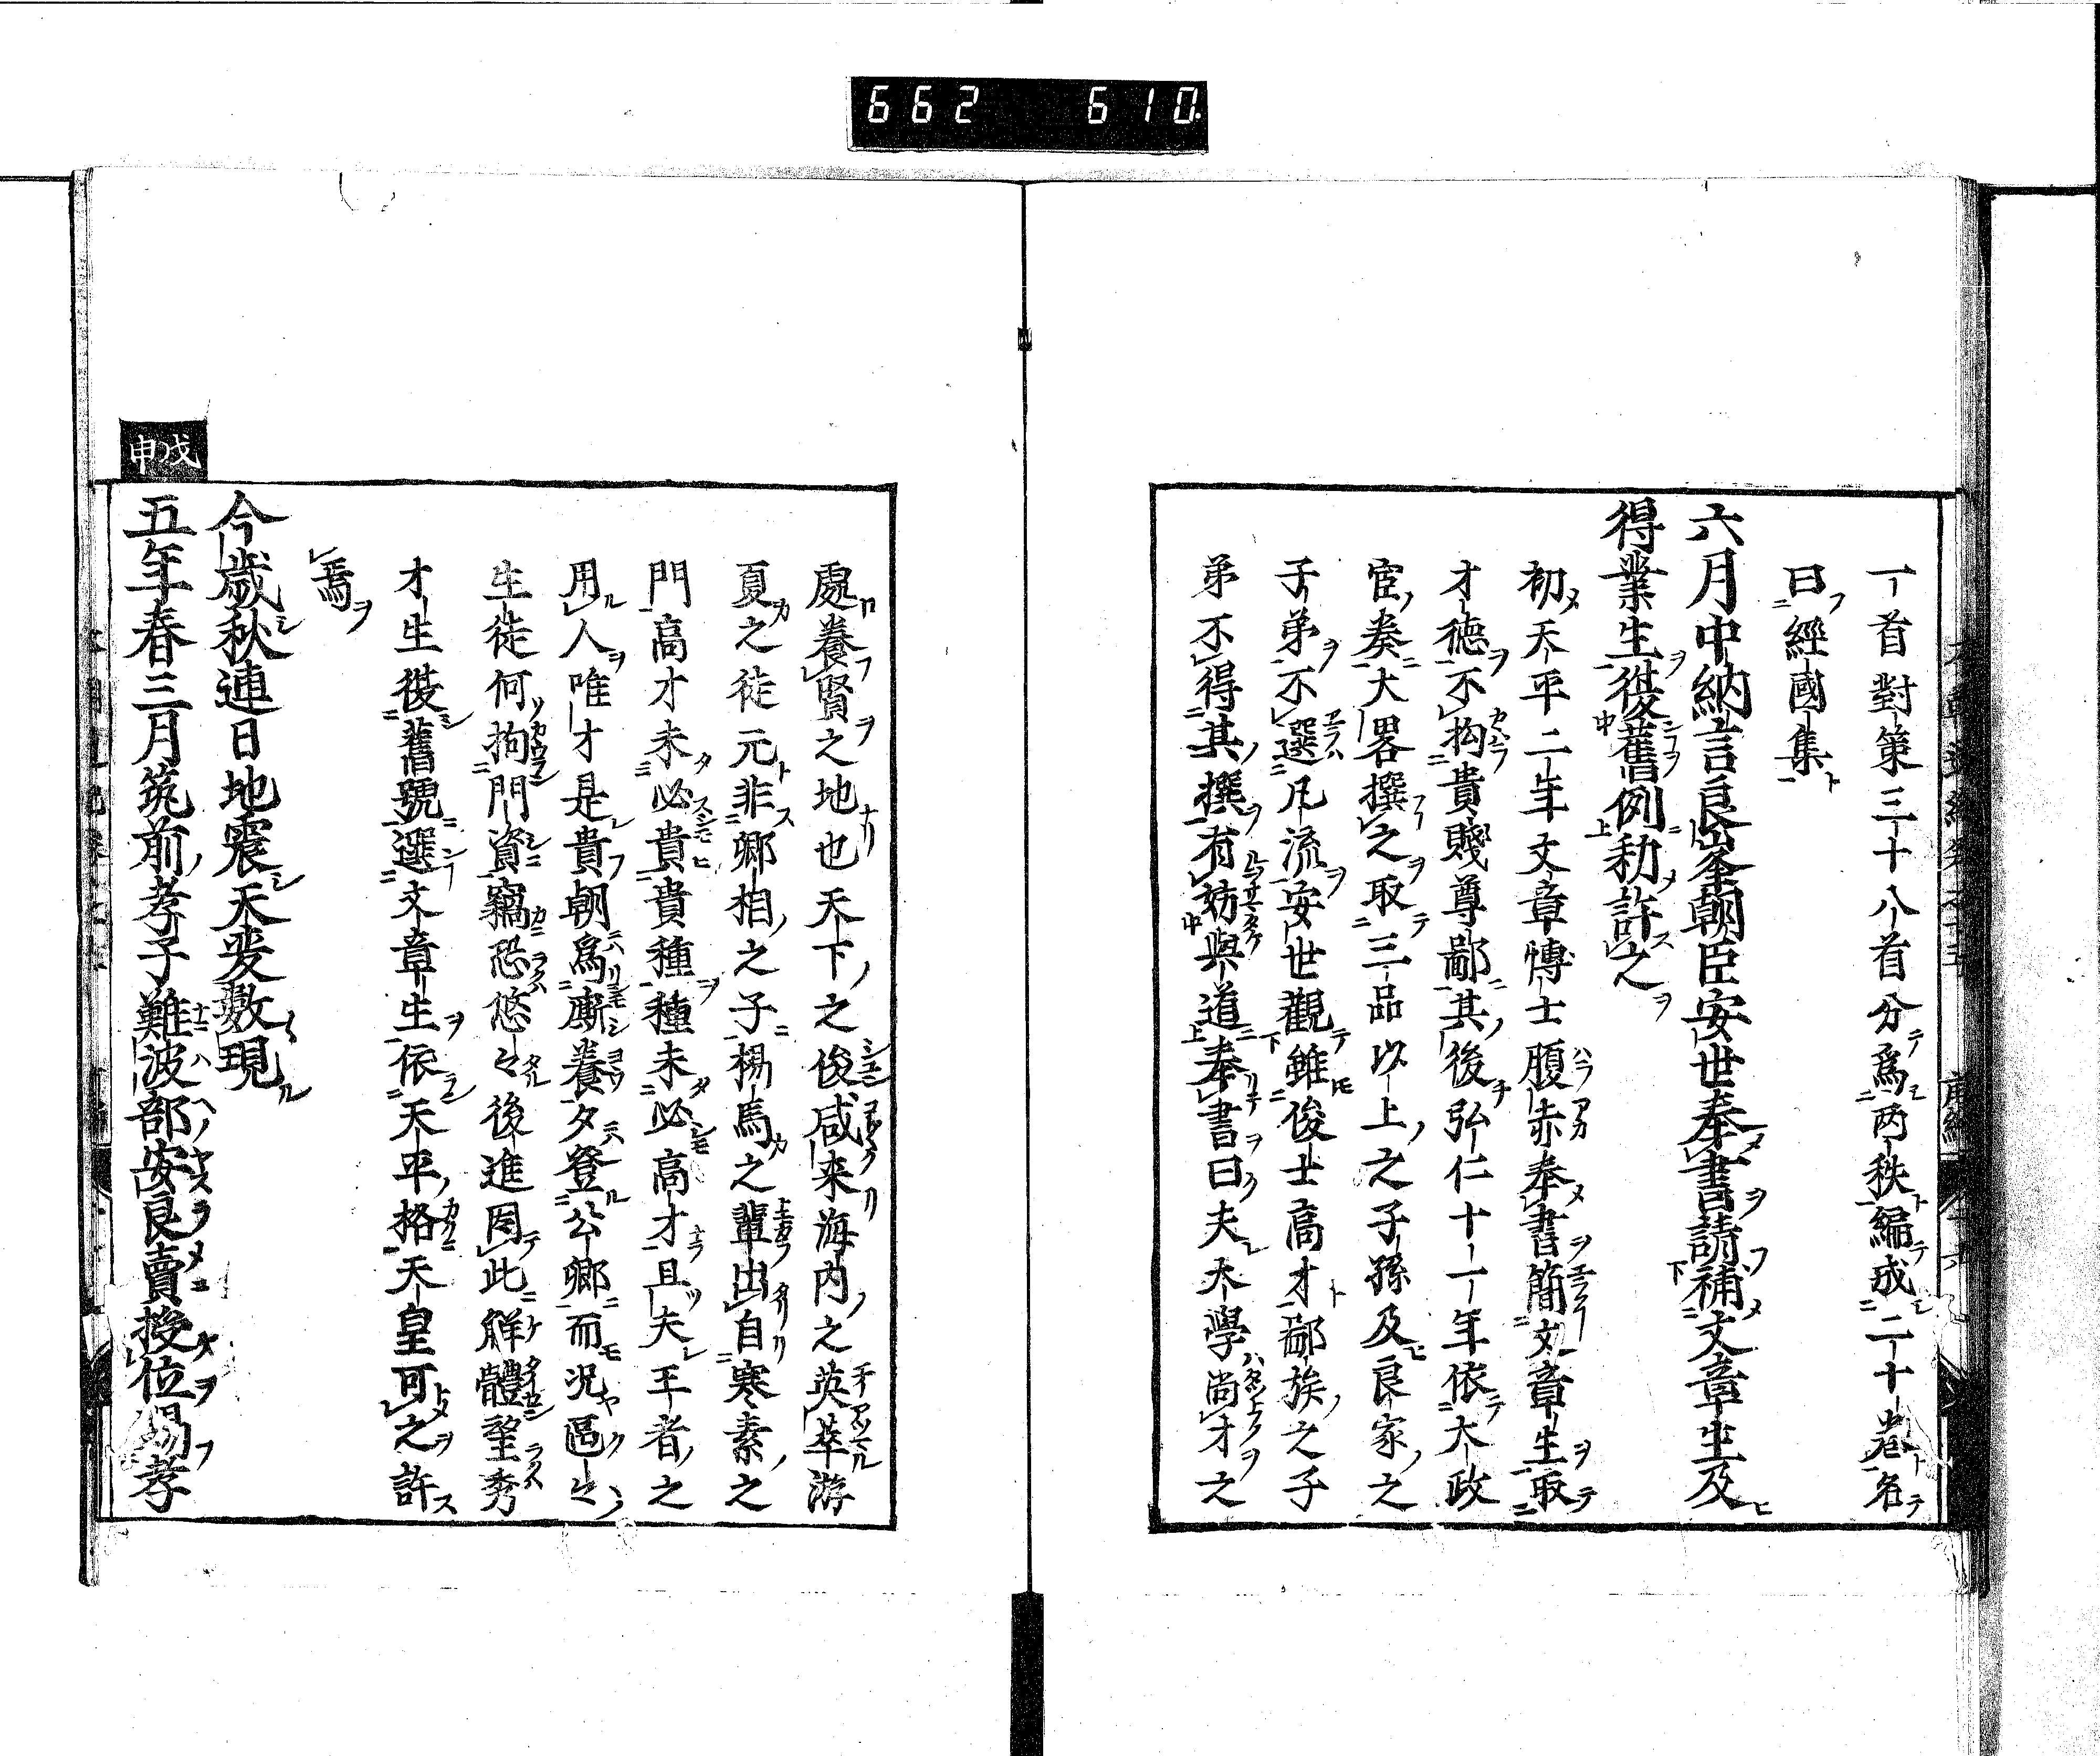 662 610
一首對策三十八首分爲两秩編成二十卷名
曰經國集
六月中納言良峯朝臣安世奉書請補文章生及
得業生復舊例勅許之
初天平二年文章博士腹赤奉書簡文章生取
才德不拘貴賤尊鄙其後弘仁十一年依大政
官奏大畧撰之取三品以上之子孫及良家之
子弟不選凡流安世觀雖俊士高才鄙族之子
弟不得其撰有妨與道奉書曰夫大學尚才之
處養賢之地也天下之俊咸来海内之英萃游
夏之徒元非卿相之子楊馬之輩出自寒素之
門高才未必貴貴種種未必高才且夫王者之
用人唯才是貴朝爲廝養夕登公卿而况區々
生徒何拘門資竊恐悠々後進因此解體望秀
才生復舊號選文章生依天平格天皇可之許
焉
今歳秋連日地震天变數現
戊申
五年春三月筑前孝子難波部安良賣授位賜孝